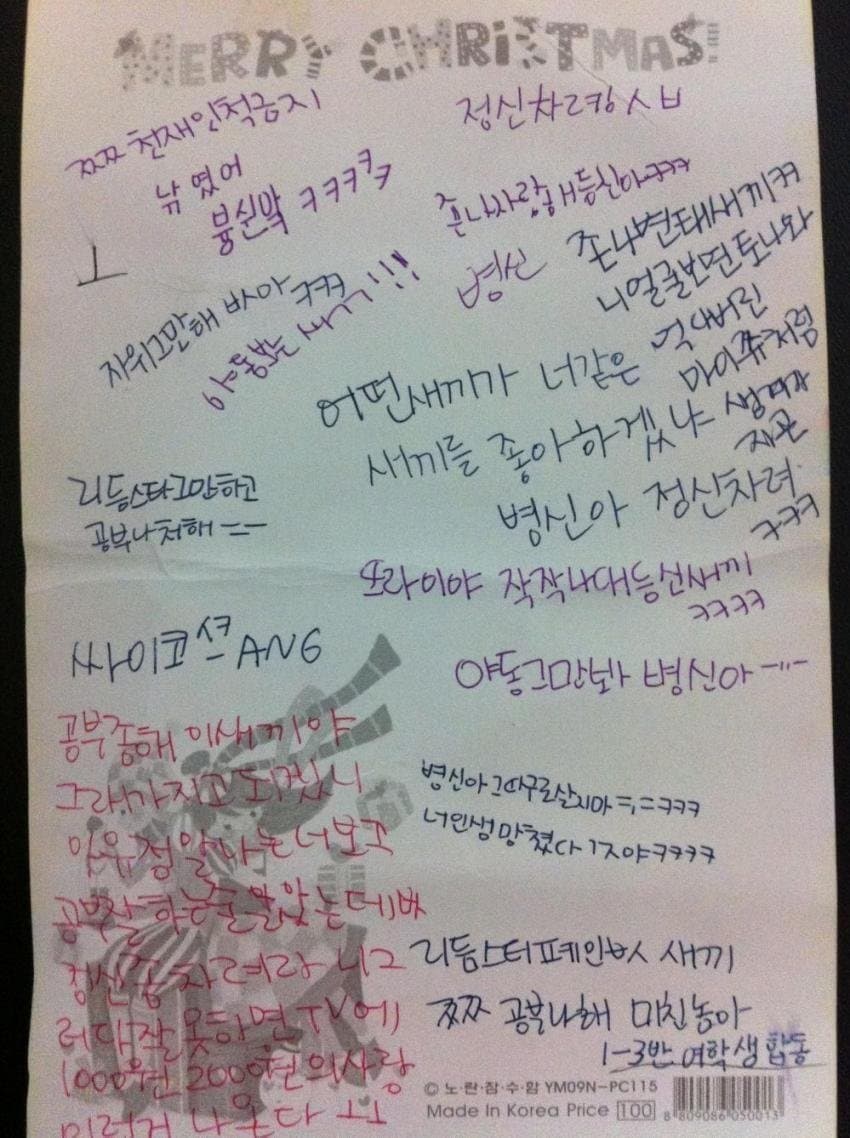 MERRY CHRISTMAS!
쯔쯔 천재인척금지
정신차려랑 ㅅㅂ
낚였어
븅쉰악 ㅋㅋㅋㅋㅋ
존나사랑해등신아ㅋㅋㅋ
병신
존나변태새끼ㅋㅋ
니얼굴보면토나와
자위그만해 바아 ㅋㅋㅋ
야동보는 새끼!!!
어떤새끼가 너같은
마이쮸처럼
생겨가
새끼를 좋아하겠냐
지곤
병신아 정신차려
ㅋㅋㅋ
리듬스타그만하고
공부나쳐해 ㅡㅡ
또라이야 작작나대등신새끼
ㅋㅋㅋㅋ
싸이코 ANG
야동그만봐 병신아 ㅡ"ㅡ
공부좀해 이새끼야
그래가지고 되겠니
정말나는너보고
공부잘하는줄알았는데
정신좀 차려라 니그
러다잘못하면TV에
1000원 200원의사랑
이런거 나온다 ㅜㅜ
병신아 그따구로살지마 ㅋㅋㅋ
너인생망쳤다 ㅋㅋㅋㅋ
리듬스터페인 새끼
쯔쯔 공부나해 미친놈아
1-3반 여학생합동
© 노·란·잠·수·함 YM09N-PC115
Made In Korea Price 100
8 809086 050013